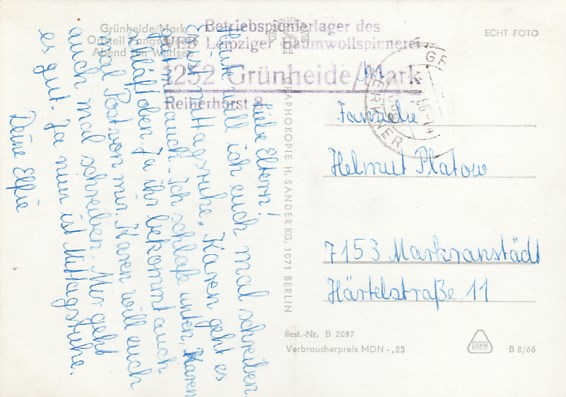 Grünheide/Mark
Ortsteil Fangschleuse
Abend am Werlsee
Betriebspionierlager des
VEB Leipziger Baumwollspinnerei
1252 Grünheide/Mark
Reiherhorst 8
ECHT FOTO
Liebe Eltern!
Heute will ich euch mal schreiben
Mittagsruhe. Karen geht es
gut auch. Ich schlafe unten, Karen
schläft oben. Ja ihr bekommt auch
mal Post von mir. Karen will euch
auch mal schreiben. Mir geht
es gut. Ja nun ist Mittagsruhe.
Deine Elfie
Familie
Helmut Platow
7153 Markranstädt
Härtelstraße 11
GRAPHOKOPIE H. SANDER KG, 1071 BERLIN
Best.-Nr. B 2097
Verbraucherpreis MDN -,25
B 8/66